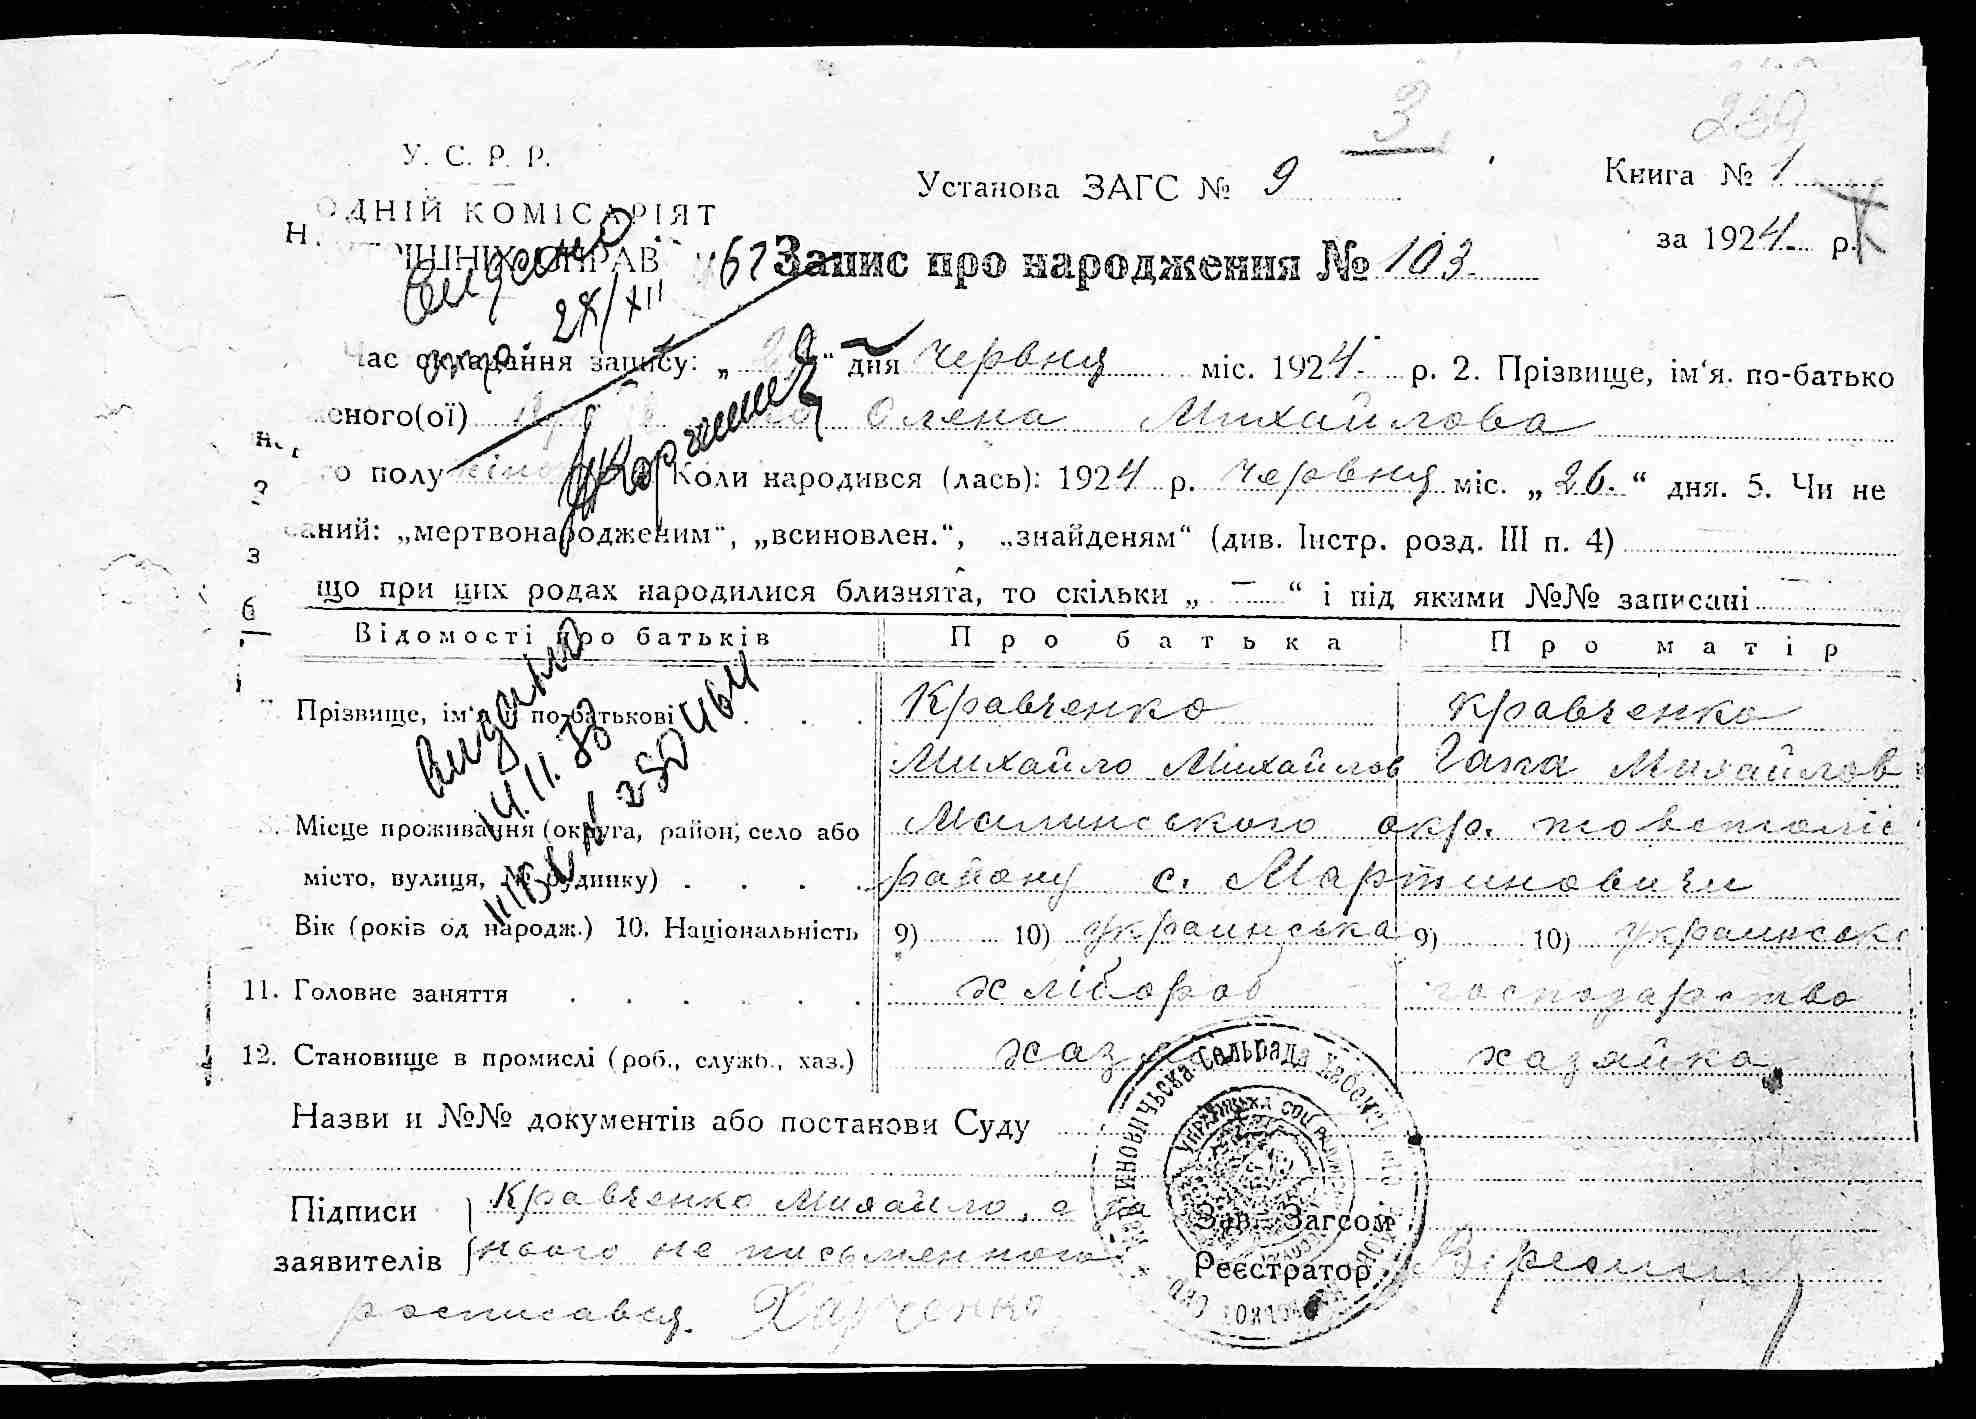 3
229
У. С. Р. Р.
Установа ЗАГС № 9
Книга № 1
ОДНІЙ КОМІСАРІЯТ
за 1924 р.
Н. ІШНІХ СПРАВ
Запис про народження № 103.
Видано
28/XII 67
Час складання запису: „29“ дня червня міс. 1924. р. 2. Прізвище, ім‘я, по-батько
еного(ої) Олена Михайлова
о полу Коли народився (лась): 1924 р. червня міс. „26.“ дня. 5. Чи не
саний: „мертвонародженим“, „всиновлен.“, „знайденям“ (див. Інстр. розд. III п. 4)
що при цих родах народилися близнята, то скільки „ — “ і під якими №№ записані —
Відомості про батьків Про батька Про матір
7. Прізвище, ім‘я по-батькові Кравченко Кравченко
Михайло Михайлов Гапа Михайлов
Видано
14.11.33
250464
8. Місце проживання (округа, район, село або Малинського окр.
місто, вулиця, № будинку) району с. Мартиновичи
Вік (років од народж.) 10. Національність 9) 10) украинська 9) 10) украинськ
11. Головне заняття хлібороб господарство
12. Становище в промислі (роб., служб., хаз.) хаз хазяйка
Назви и №№ документів або постанови Суду
Підписи Кравченко Михайло, а за
заявителів нього не письменного
росписався. Харченко
Зав. Загсом
Реєстратор
Мартиновичьска Сельрада